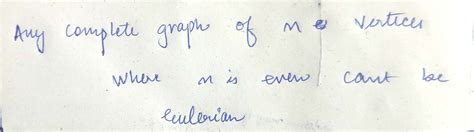 Any complete graph of n vertices
where n is even cant be
eulerian